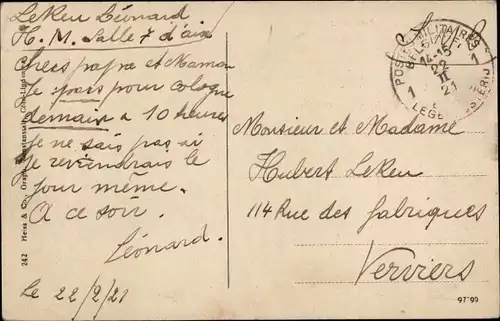 Lekeu Léonard
H. M. Salle 7 d'aix
Chers papa et Maman
Je pars pour Cologne
demain a 10 heures
je ne sais pas si
je reviendrais le
jour même.
A ce soir.
Léonard.
Le 22/2/21
POSTES MILITAIRES
14-15
22
II
21
1 1
LEGERPOSTERIJ
Monsieur et Madame
Hubert Lekeu
114 Rue des fabriques
Verviers
242 Heiss & Co., Cöln-Lindenthal
97*99